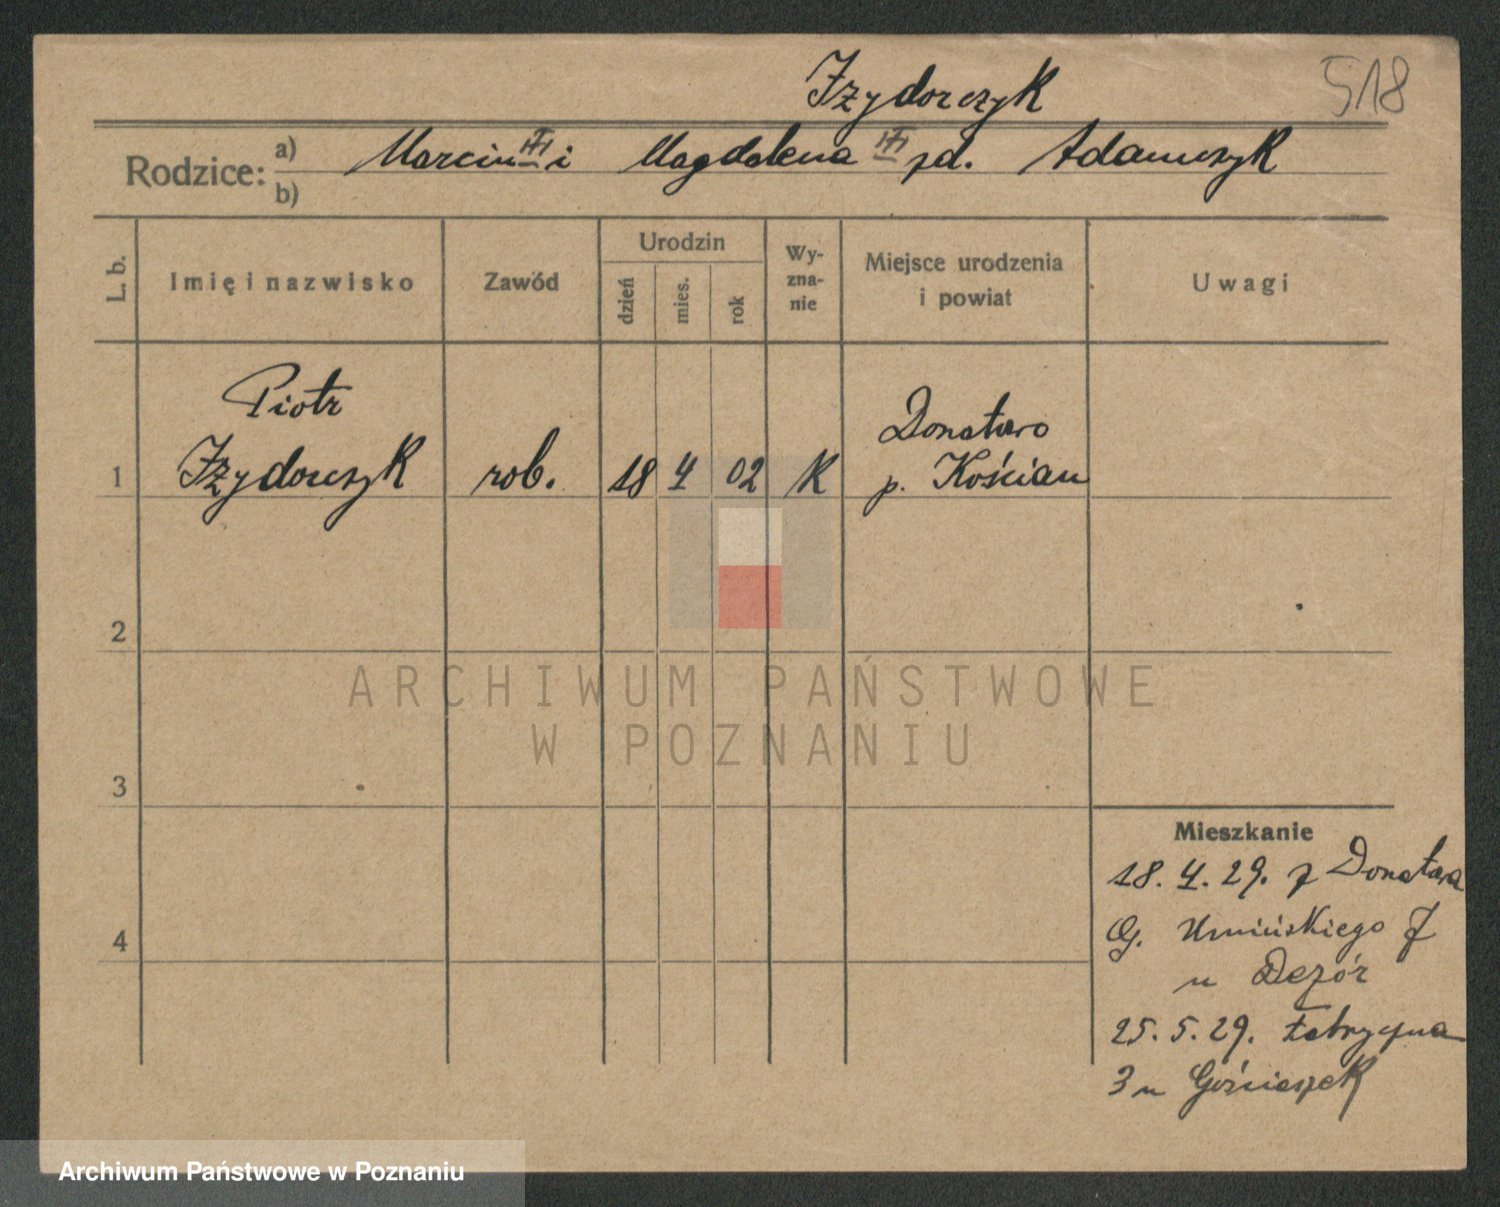 Izydorczyk 518
Rodzice: a) Marcin i Magdalena zd. Adamczyk
b)
L. b. Imię i nazwisko Zawód Urodzin dzień mies. rok Wyznanie Miejsce urodzenia i powiat Uwagi
Piotr Donatowo
1 Izydorczyk rob. 18 4 02 K p. Kościan
2
3
4
Mieszkanie
18. 4. 29. z Donatowa
G. Umińskiego 7
u
25. 5. 29. Fabryczna
3 u
ARCHIWUM PAŃSTWOWE
W POZNANIU
Archiwum Państwowe w Poznaniu